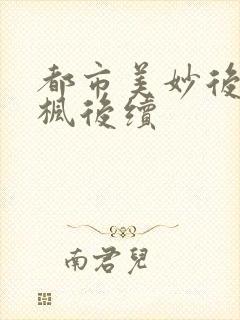 都市美妙後
楓後續
南君兒